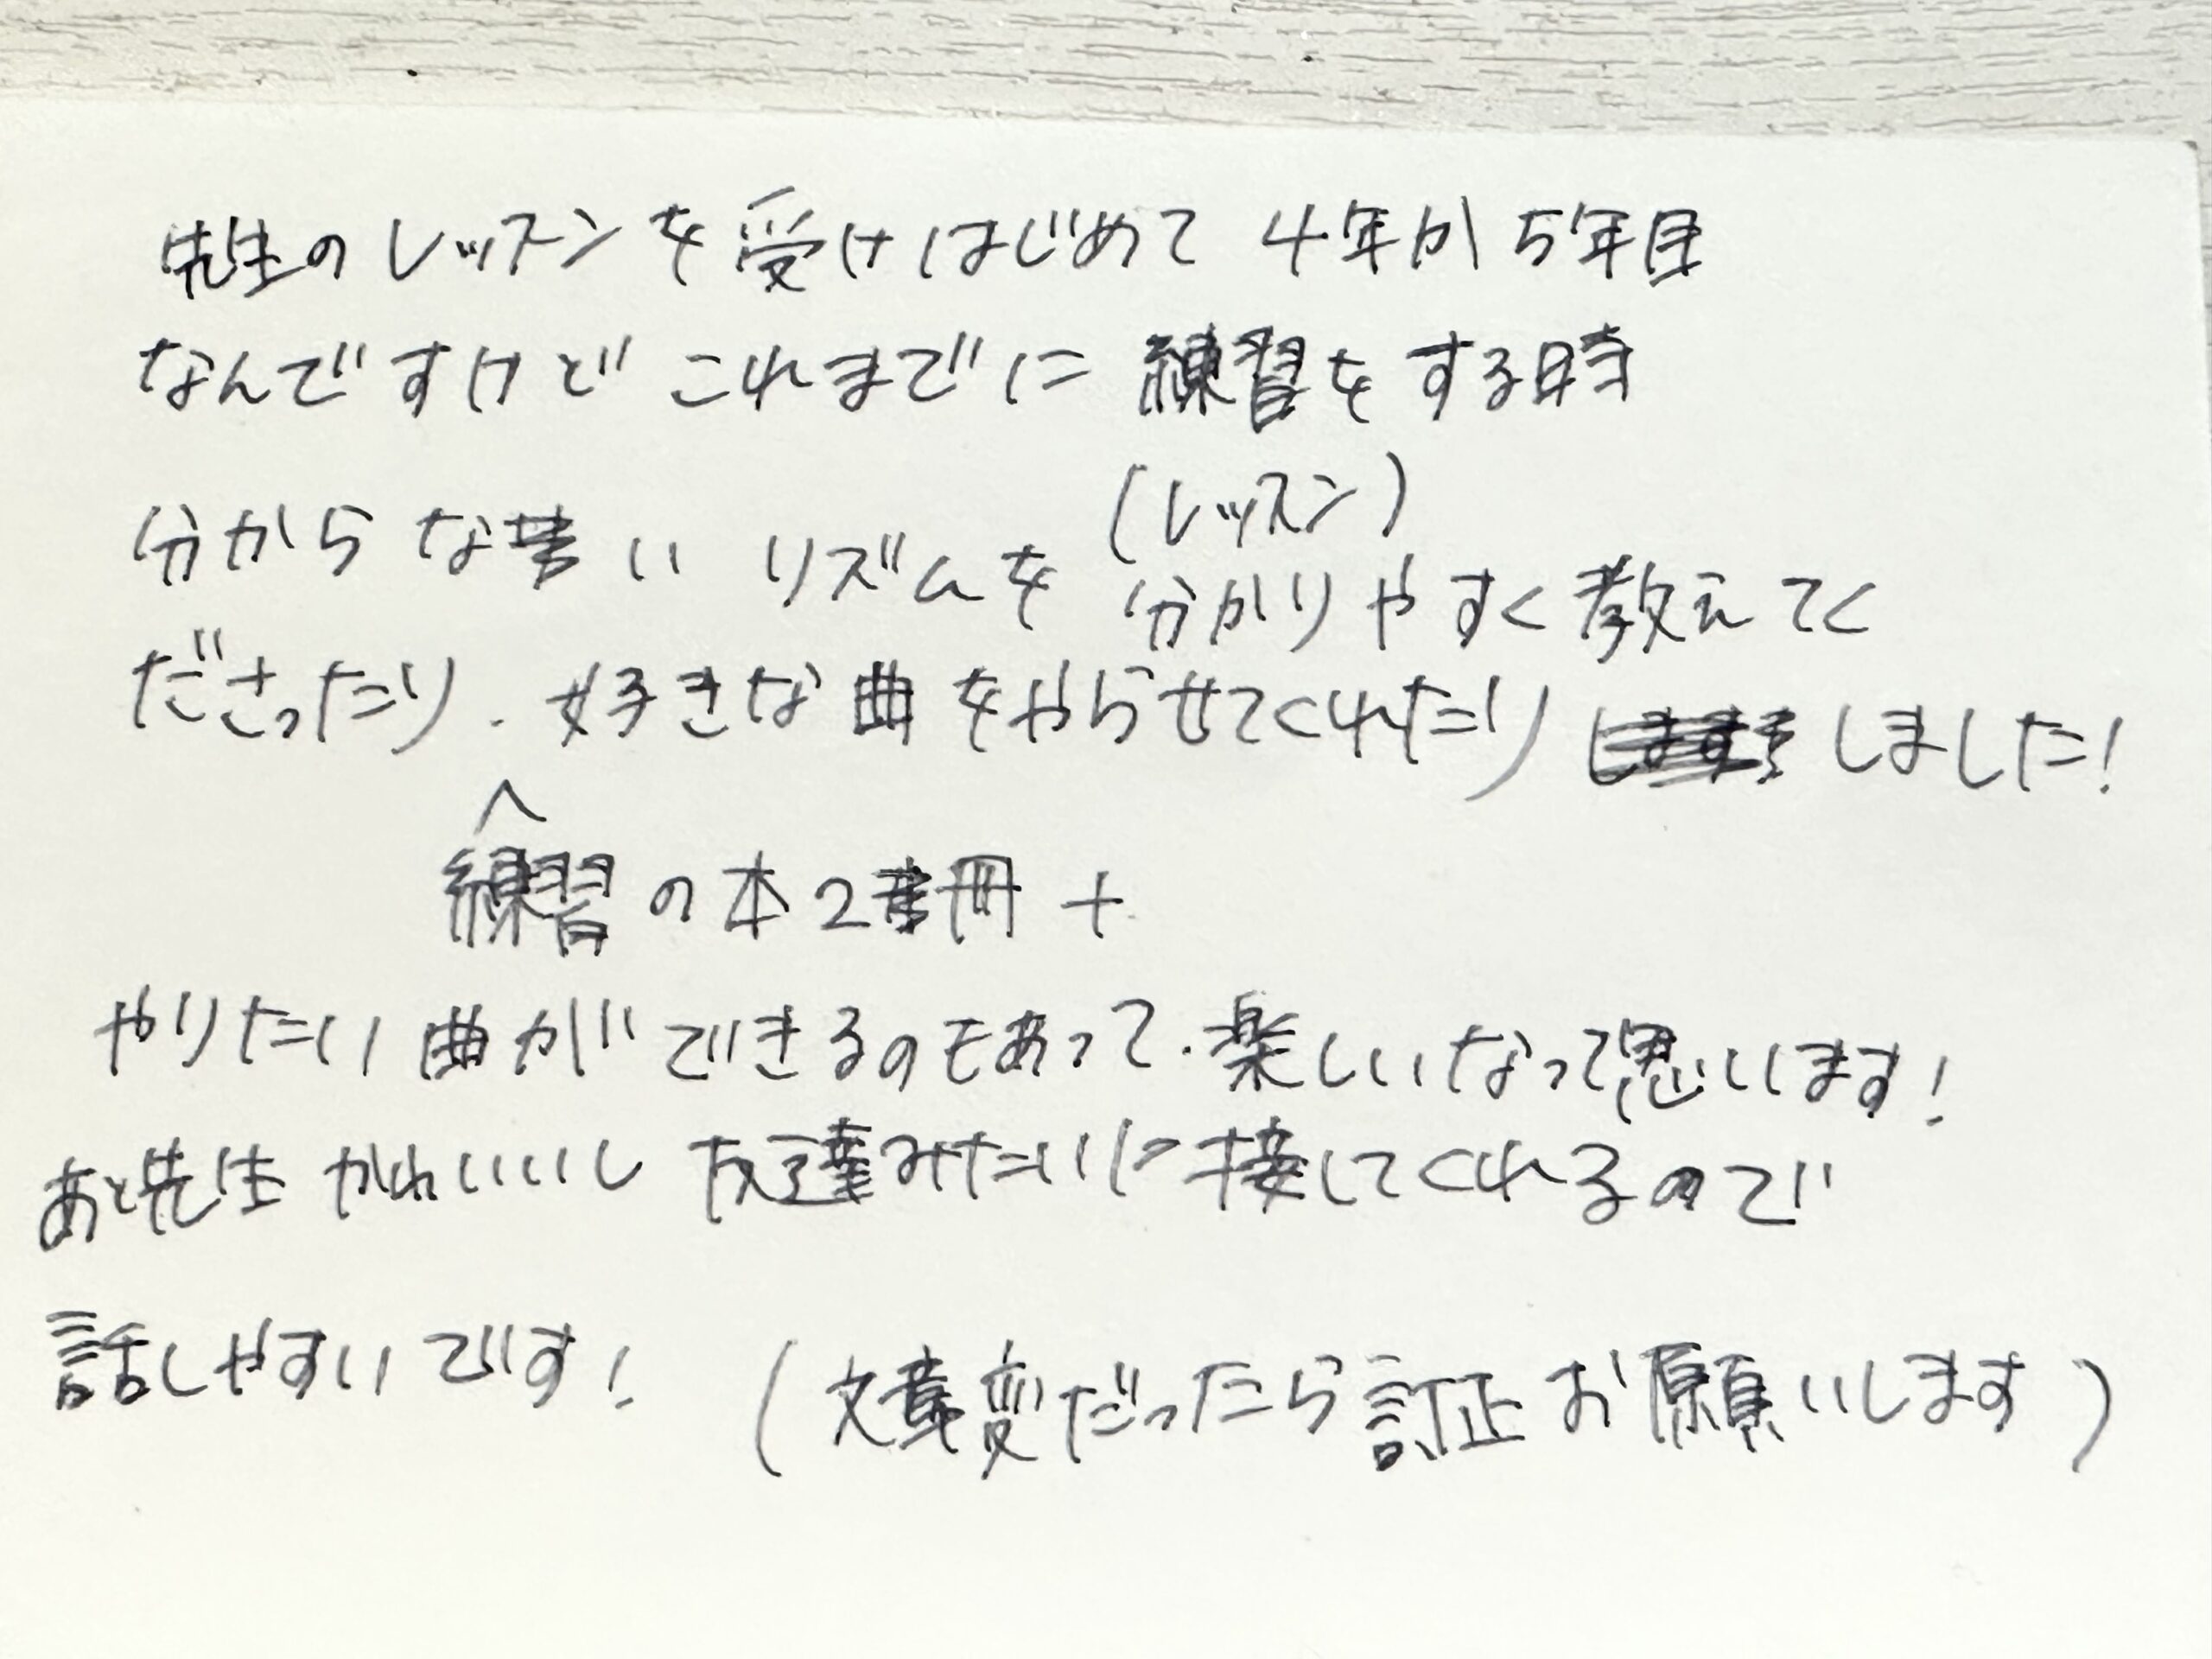 先生のレッスンを受けはじめて 4年か5年目
なんですけど これまでに 練習をする時
(レッスン)
分からない リズムを 分かりやすく教えてく
ださったり、好きな曲をやらせてくれたり しました!
練習の本2冊 +
やりたい曲ができるのもあって、楽しいなって思います!
あと先生 かわいいし 友達みたいに接してくれるので
話しやすいです! (文章変だったら訂正お願いします)